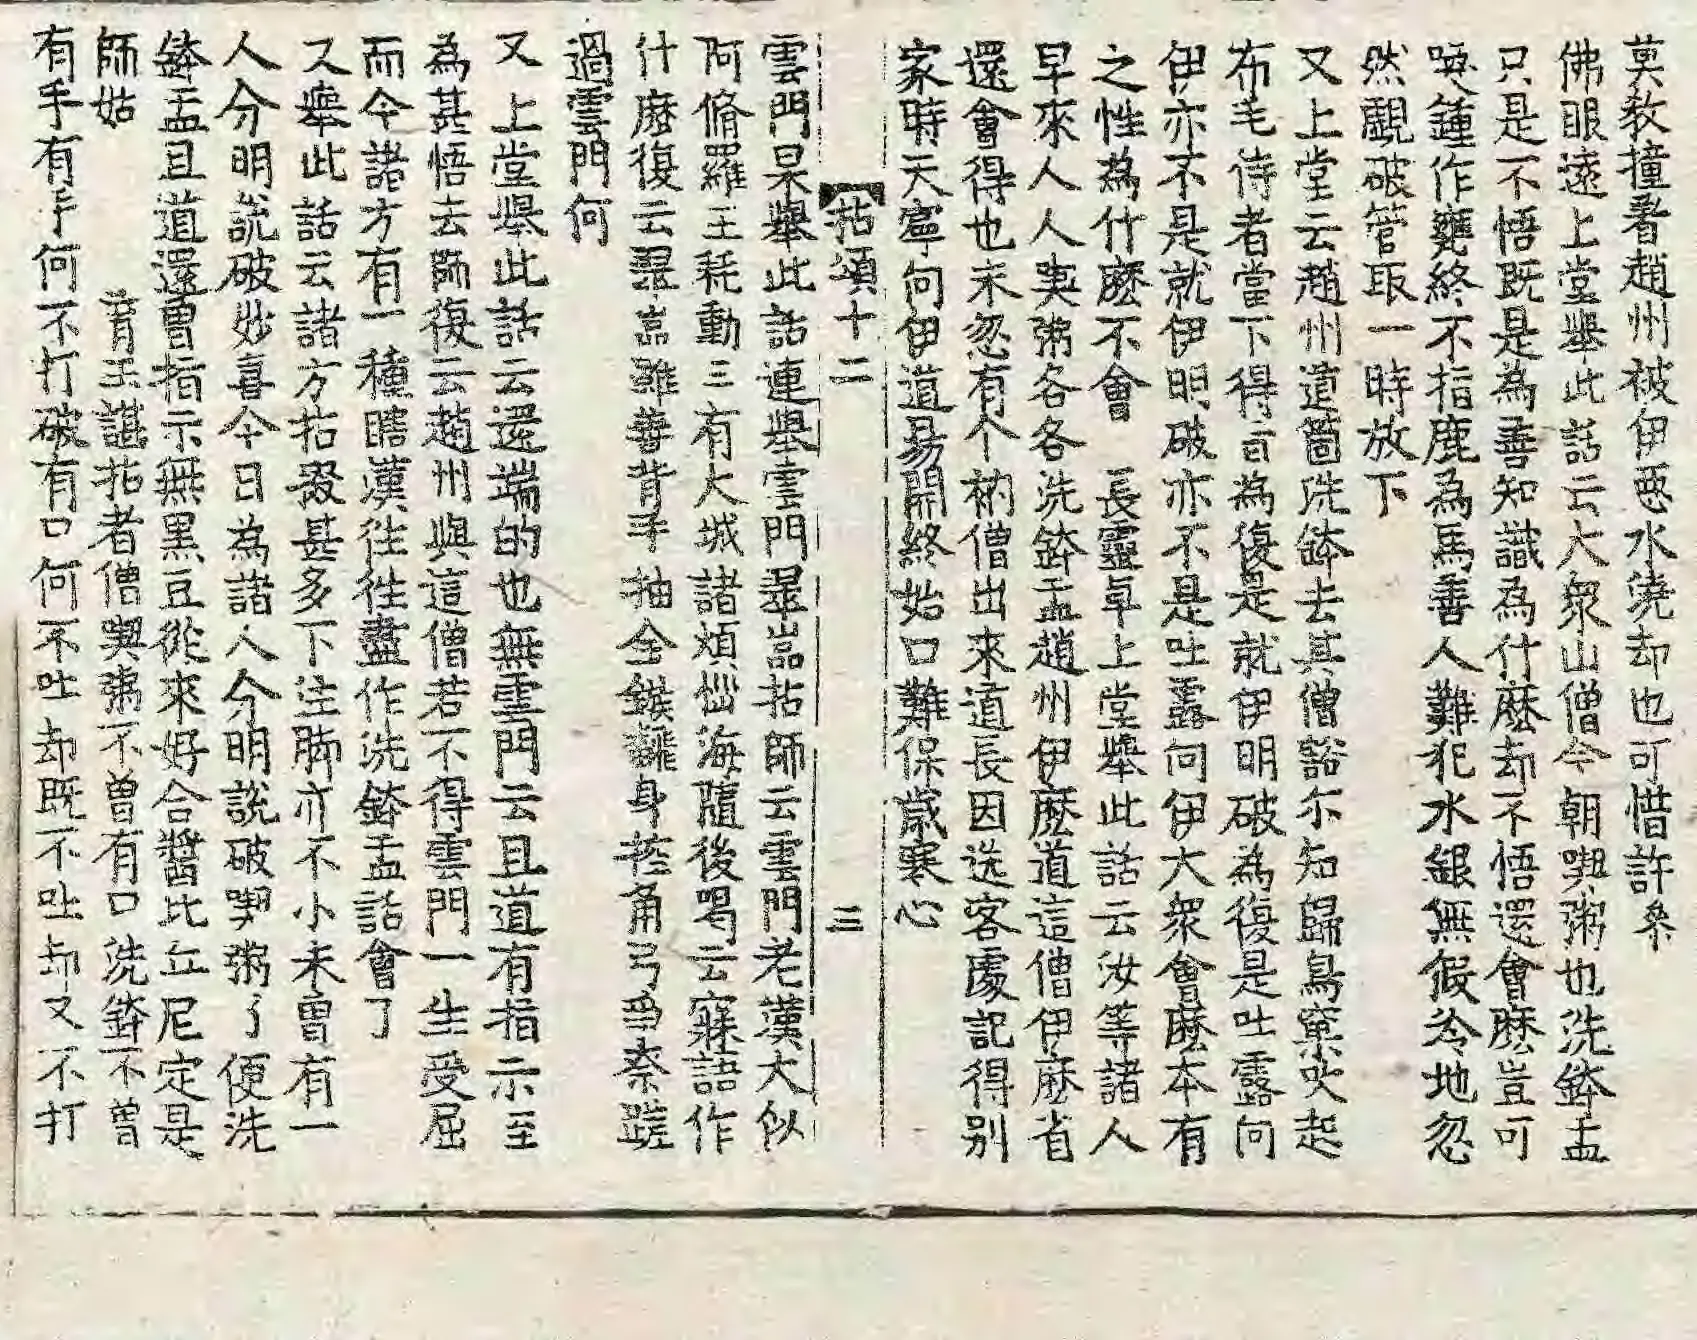 莫教撞着趙州被伊惡水澆却也可惜許參
佛眼遠上堂舉此話云大衆山僧今朝喫粥也洗鉢盂
只是不悟既是為善知識為什麽却不悟還會麽豈可
喚鍾作甕終不指鹿為馬善人難犯水銀無假冷地忽
然覰破管取一時放下
又上堂云趙州道箇洗鉢去其僧豁尒知歸鳥窠吹起
布毛侍者當下得旨為復是就伊明破為復是吐露向
伊亦不是就伊明破亦不是吐露向伊大衆會麽本有
之性為什麽不會 長靈卓上堂舉此話云汝等諸人
早來人人喫粥各各洗鉢盂趙州伊麽道這僧伊麽省
還會得也未忽有个衲僧出來道長因送客處記得別
家時天寧向伊道易開終始口難保歲寒心
拈頌十二 三
雲門杲舉此話連舉雲門雲峕拈師云雲門老漢大似
阿脩羅王耗動三有大城諸煩惱海隨後喝云寐語作
什麽復云翠嵓雖善背手抽金鏃飜身控角弓爭奈蹉
過雲門何
又上堂舉此話云還端的也無雲門云且道有指示至
為甚悟去師復云趙州與這僧若不得雲門一生受屈
而今諸方有一種瞎漢往往盡作洗鉢盂話會了
又舉此話云諸方拈掇甚多下注脚亦不小未曾有一
人分明說破妙喜今日為諸人分明說破喫粥了便洗
鉢盂且道還曾指示無黑豆從來好合醬比丘尼定是
師姑 育王諶拈者僧喫粥不曾有口洗鉢不曾
有手有手何不打破有口何不吐却既不吐却又不打